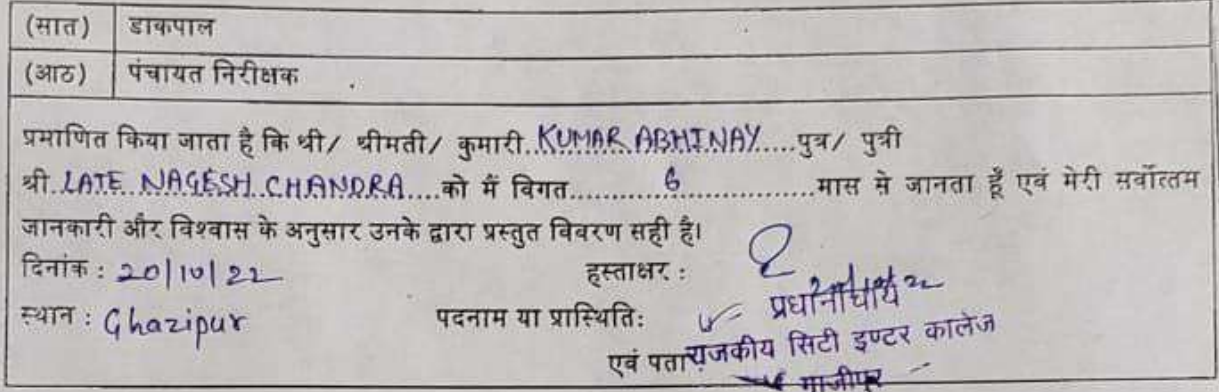 (सात) डाकपाल
(आठ) पंचायत निरीक्षक
प्रमाणित किया जाता है कि श्री/ श्रीमती/ कुमारी..KUMAR ABHINAY.....पुत्र/ पुत्री
श्री.LATE NAGESH CHANDRA....को मैं विगत..........6..............मास से जानता हूँ एवं मेरी सर्वोत्तम
जानकारी और विश्वास के अनुसार उनके द्वारा प्रस्तुत विवरण सही है।
दिनांक : 20/10/22 हस्ताक्षर :
स्थान : Ghazipur पदनाम या प्रास्थिति: प्रधानाचार्य
एवं पता राजकीय सिटी इण्टर कालेज
गाजीपुर